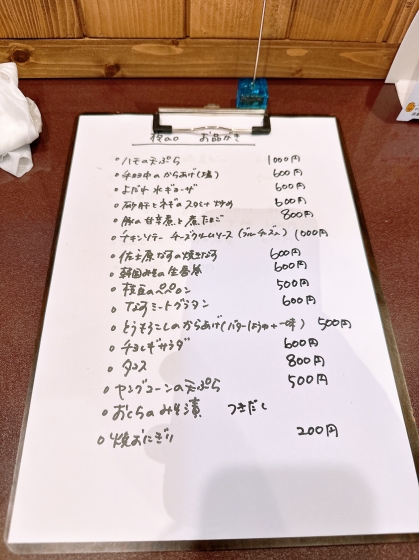 お品がき
・ハモの天ぷら 1000円
・手羽中のからあげ(塩) 600円
・よだれ水ギョーザ 600円
・砂肝とネギのスタミナ炒め 600円
・豚の甘辛煮と煮たまご 800円
・チキンソテー チーズクリームソース(ブルーチーズ入) 1000円
・佐土原なすの焼きなす 600円
・韓国みその生春巻 600円
・枝豆のペペロン 500円
・なすミートグラタン 600円
・とうもろこしのからあげ(バターしょうゆ+一味) 500円
・チョレギサラダ 600円
・タコス 800円
・ヤングコーンの天ぷら 500円
・おくらのみそ漬 つきだし
・焼おにぎり 200円